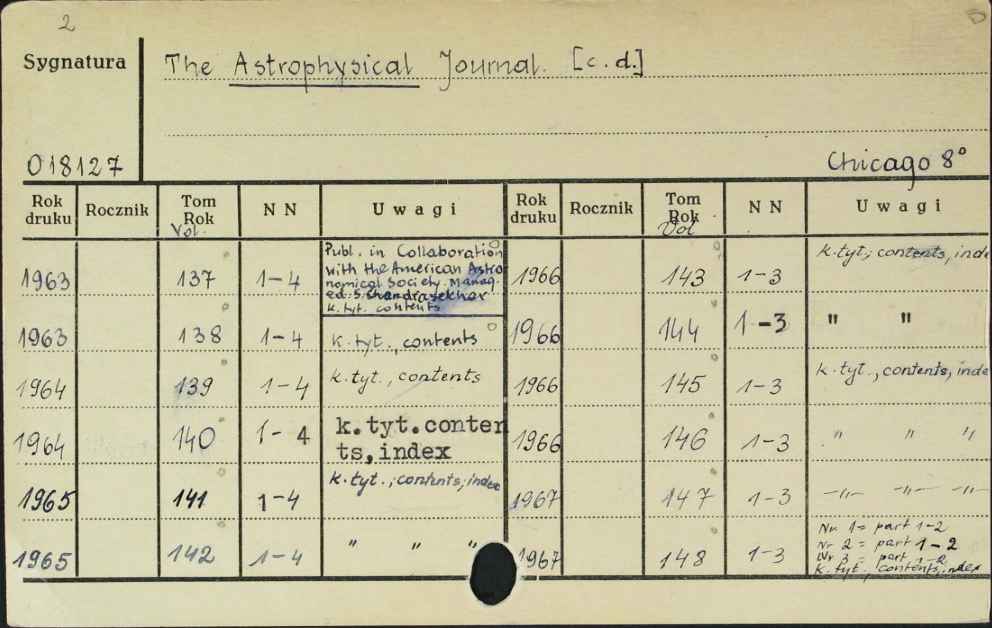 2
Sygnatura
The Astrophysical Journal. [c.d.]
018127
Chicago 8°
Rok druku Rocznik Tom Rok Vol. NN Uwagi Rok druku Rocznik Tom Rok Vol NN Uwagi
1963 137 1-4
Publ. in Collaboration
with the American Astro
nomical Society. Manag.
ed. S. Chandrasekhar
k. tyt. contents
1963 138 1-4 k. tyt., contents
1964 139 1-4 k. tyt., contents
1964 140 1-4 k. tyt. conten
ts, index
1965 141 1-4 k. tyt., contents, index
1965 142 1-4 " " "
1966 143 1-3 k. tyt; contents, inde
1966 144 1-3 " "
1966 145 1-3 k. tyt., contents, inde
1966 146 1-3 " " "
1967 147 1-3 -"- -"- -"-
1967 148 1-3
Nr 1 = part 1-2
Nr 2 = part 1-2
Nr 3 = part 1-2
k. tyt., contents, index